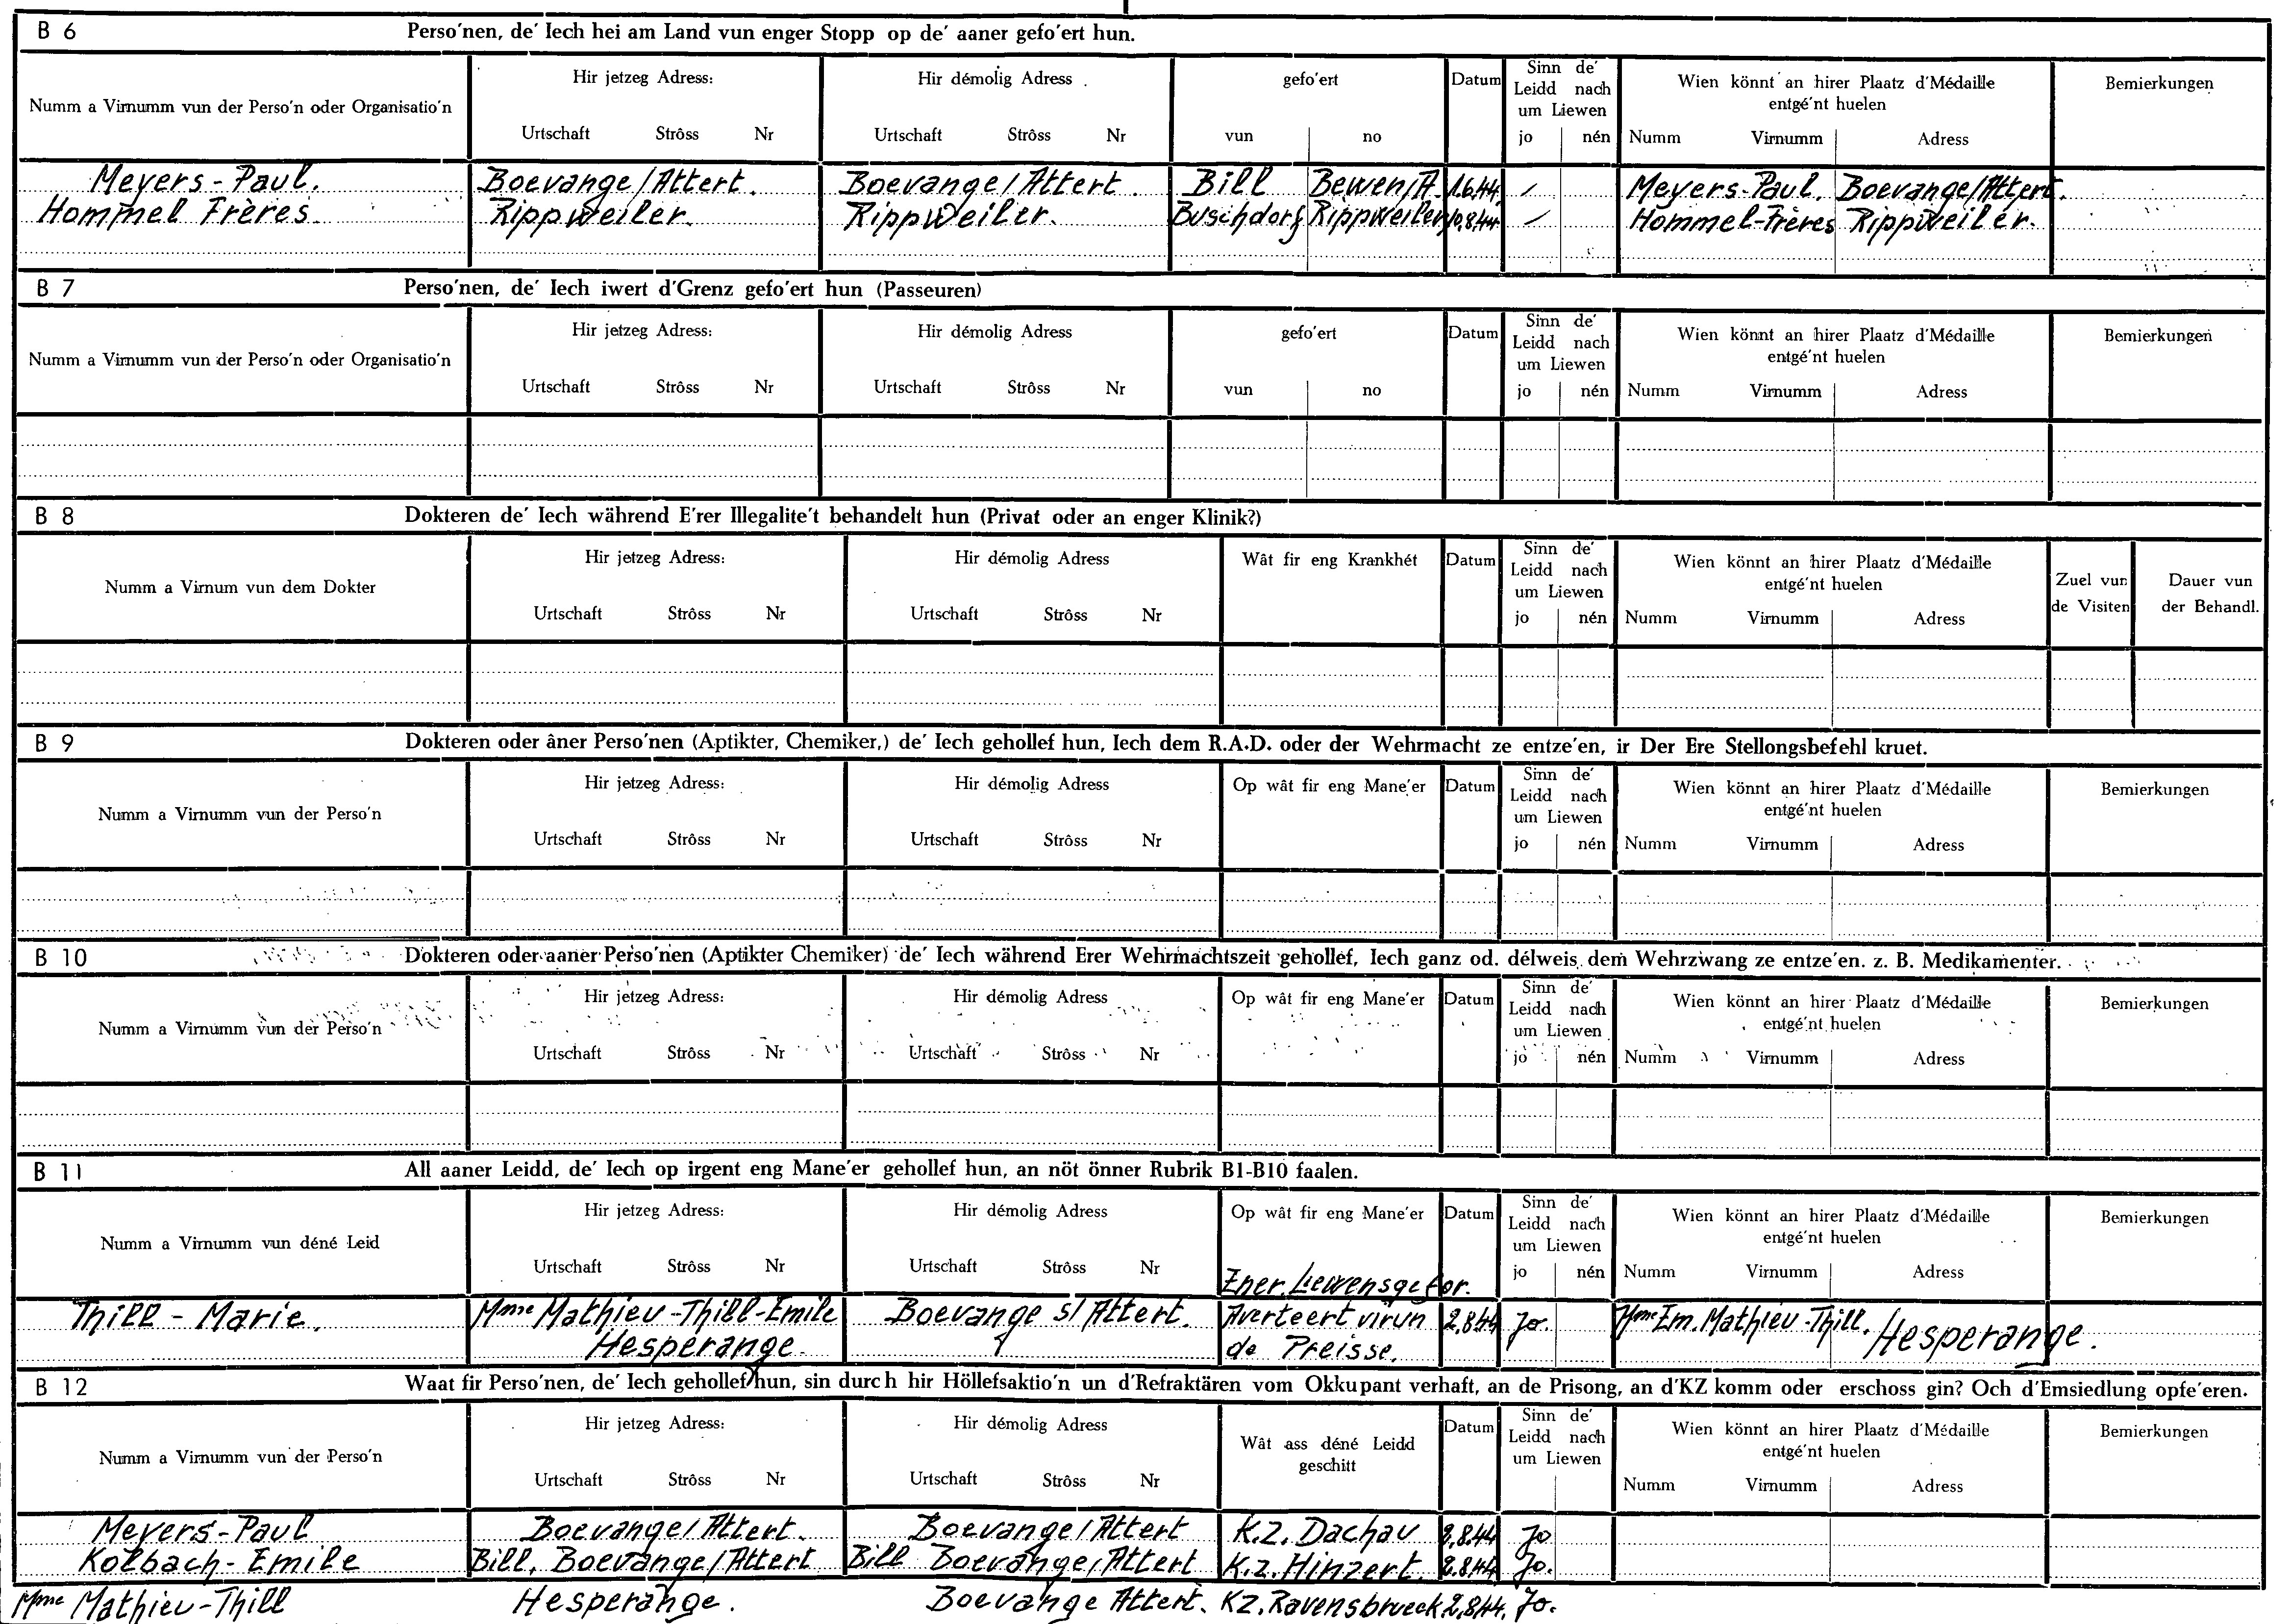 B 6 Perso'nen, de' Iech hei am Land vun enger Stopp op de' aaner gefo'ert hun.
Numm a Virnumm vun der Perso'n oder Organisatio'n
Hir jetzeg Adress:
Urtschaft Strôss Nr
Hir démolig Adress
Urtschaft Strôss Nr
gefo'ert
vun no
Datum
Sinn de'
Leidd nach
um Liewen
jo nén
Wien könnt an hirer Plaatz d'Médaille
entgé'nt huelen
Numm Virnumm Adress
Bemierkungen
Meyers - Paul. Boevange/Attert. Boevange/Attert. Bill Bewen/A. 1.6.44. / Meyers-Paul. Boevange/Attert.
Hommel Frères Rippweiler. Rippweiler. Buschdorf Rippweiler 10.8.44. / Hommel-Frères Rippweiler.
B 7 Perso'nen, de' Iech iwert d'Grenz gefo'ert hun (Passeuren)
Numm a Virnumm vun der Perso'n oder Organisatio'n
Hir jetzeg Adress:
Urtschaft Strôss Nr
Hir démolig Adress
Urtschaft Strôss Nr
gefo'ert
vun no
Datum
Sinn de'
Leidd nach
um Liewen
jo nén
Wien könnt an hirer Plaatz d'Médaille
entgé'nt huelen
Numm Virnumm Adress
Bemierkungen
B 8 Dokteren de' Iech während E'rer Illegalite't behandelt hun (Privat oder an enger Klinik?)
Numm a Virnum vun dem Dokter
Hir jetzeg Adress:
Urtschaft Strôss Nr
Hir démolig Adress
Urtschaft Strôss Nr
Wât fir eng Krankhét
Datum
Sinn de'
Leidd nach
um Liewen
jo nén
Wien könnt an hirer Plaatz d'Médaille
entgé'nt huelen
Numm Virnumm Adress
Zuel vun
de Visiten
Dauer vun
der Behandl.
B 9 Dokteren oder âner Perso'nen (Aptikter, Chemiker,) de' Iech gehollef hun, Iech dem R.A.D. oder der Wehrmacht ze entze'en, ir Der Ere Stellongsbefehl kruet.
Numm a Virnumm vun der Perso'n
Hir jetzeg Adress:
Urtschaft Strôss Nr
Hir démolig Adress
Urtschaft Strôss Nr
Op wât fir eng Mane'er
Datum
Sinn de'
Leidd nach
um Liewen
jo nén
Wien könnt an hirer Plaatz d'Médaille
entgé'nt huelen
Numm Virnumm Adress
Bemierkungen
B 10 Dokteren oder aaner Perso'nen (Aptikter Chemiker) de' Iech während Erer Wehrmachtszeit gehollef, Iech ganz od. délweis dem Wehrzwang ze entze'en. z. B. Medikamenter.
Numm a Virnumm vun der Perso'n
Hir jetzeg Adress:
Urtschaft Strôss Nr
Hir démolig Adress
Urtschaft Strôss Nr
Op wât fir eng Mane'er
Datum
Sinn de'
Leidd nach
um Liewen
jo nén
Wien könnt an hirer Plaatz d'Médaille
entgé'nt huelen
Numm Virnumm Adress
Bemierkungen
B 11 All aaner Leidd, de' Iech op irgent eng Mane'er gehollef hun, an nöt önner Rubrik B1-B10 faalen.
Numm a Virnumm vun déné Leid
Hir jetzeg Adress:
Urtschaft Strôss Nr
Hir démolig Adress
Urtschaft Strôss Nr
Op wât fir eng Mane'er
Datum
Sinn de'
Leidd nach
um Liewen
jo nén
Wien könnt an hirer Plaatz d'Médaille
entgé'nt huelen
Numm Virnumm Adress
Bemierkungen
Ener. Liewensgefor.
Thill - Marie. Mme Mathieu-Thill-Emile Boevange s/Attert. Averteert virun 2.8.44 Jo. Mme Em. Mathieu-Thill. Hesperange.
Hesperange. de Preisse.
B 12 Waat fir Perso'nen, de' Iech gehollef hun, sin durch hir Höllefsaktio'n un d'Refraktären vom Okkupant verhaft, an de Prisong, an d'KZ komm oder erschoss gin? Och d'Emsiedlung opfe'eren.
Numm a Virnumm vun der Perso'n
Hir jetzeg Adress:
Urtschaft Strôss Nr
Hir démolig Adress
Urtschaft Strôss Nr
Wât ass déné Leidd
geschitt
Datum
Sinn de'
Leidd nach
um Liewen
Wien könnt an hirer Plaatz d'Médaille
entgé'nt huelen
Numm Virnumm Adress
Bemierkungen
Meyers-Paul Boevange/Attert. Boevange/Attert K.Z. Dachau 2.8.44 Jo
Kolbach-Emile Bill. Boevange/Attert Bill Boevange/Attert K.Z. Hinzert. 2.8.44 Jo.
Mme Mathieu-Thill Hesperange. Boevange Attert. KZ. Ravensbrueck 2.8.44. Jo.